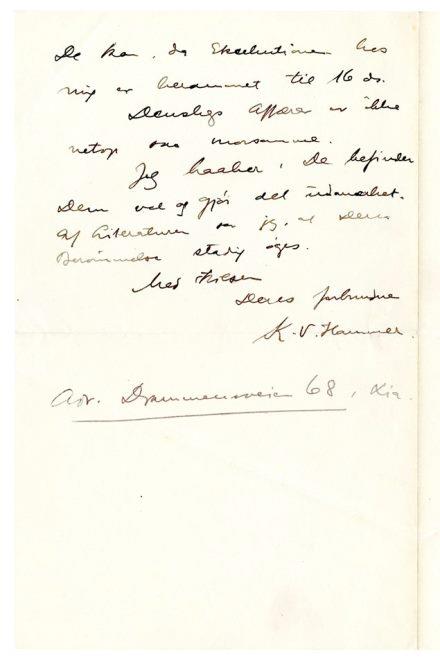 De kan, da Exekutionen hos
mig er berammet til 16 ds.
Denslags Affærer er ikke
netop saa morsomme.
Jeg haaber, De befinder
Dem vel og gjør det udmærket.
Af Literaturen ser jeg, at Deres
Berømmelse stadig øges.
Med Hilsen
Deres forbundne
K. V. Hammer.
Adr. Drammensveien 68, Kia.